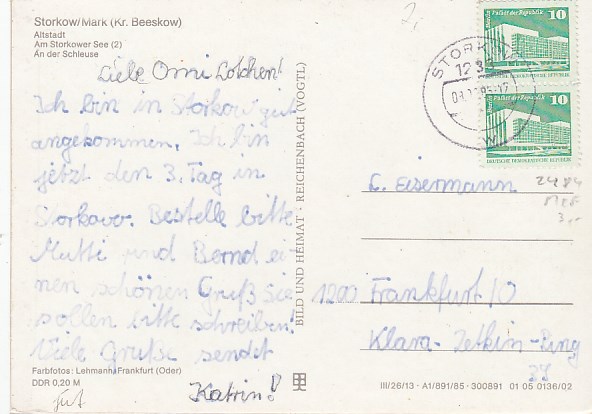 Storkow/Mark (Kr. Beeskow)
Altstadt
Am Storkower See (2)
An der Schleuse
Liebe Omi Lottchen!
Ich bin in Storkow gut
angekommen. Ich bin
jetzt den 3. Tag in
Storkow. Bestelle bitte
Mutti und Bernd ei
nen schönen Gruß Sie
sollen bitte schreiben!
Viele Grüße sendet
Katrin!
Farbfotos: Lehmann, Frankfurt (Oder)
DDR 0,20 M
BILD UND HEIMAT · REICHENBACH (VOGTL)
Palast der Republik 10
DEUTSCHE DEMOKRATISCHE REPUBLIK
Palast der Republik 10
DEUTSCHE DEMOKRATISCHE REPUBLIK
STORKOW
C. Eisermann
2484
3,-
1200 Frankfurt/O
Klara-Zetkin-Ring
29
III/26/13 · A1/891/85 · 300891 01 05 0136/02